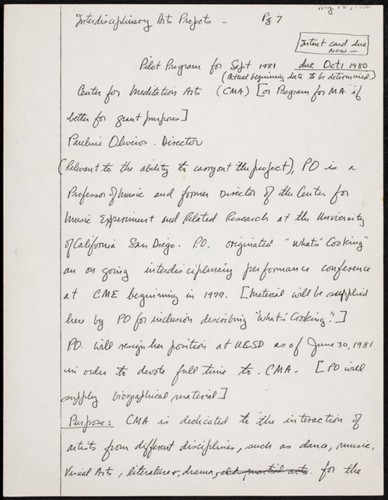 Interdisciplinary Arts Projects - Pg 7
Intent card due
now -
Pilot Program for Sept 1981 due Oct 1 1980
(Actual beginning date to be determined)
Center for Meditation Arts (CMA) [or Program for MA if
better for grant purposes]
Pauline Oliveros. Director
(Relevant to the ability to carry out the project), PO is a
Professor of Music and former Director of the Center for
Music Experiment and Related Research at the University
of California San Diego. PO. originated "What's Cooking"
an on going interdisciplinary performance conference
at CME beginning in 1977. [Material will be supplied
here by PO for inclusion describing "What's Cooking".]
PO. will resign her position at UCSD as of June 30, 1981
in order to devote full time to CMA. [PO will
supply biographical material]
Purpose: CMA is dedicated to the interaction of
artists from different disciplines, such as dance, music,
Visual Arts, literature, drama, and martial arts for the